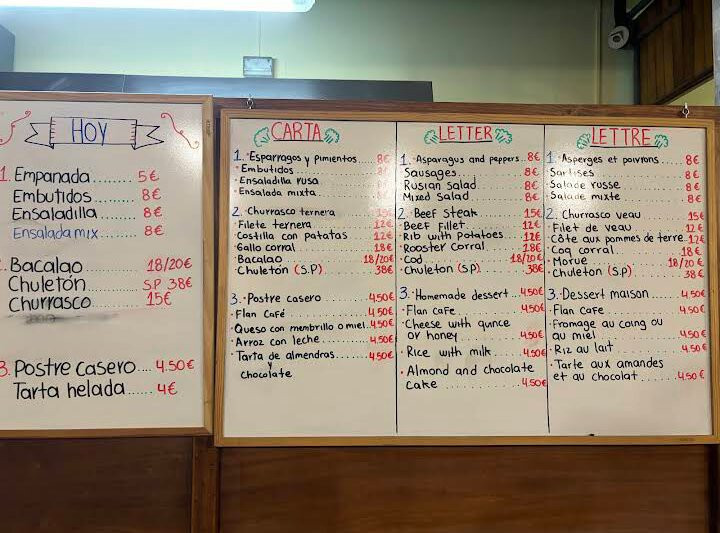 HOY
1. Empanada........5€
Embutidos......8€
Ensaladilla......8€
Ensalada mix......8€
Bacalao 18/20€
Chuletón S.P 38€
Churrasco 15€
3. Postre casero....4.50€
Tarta helada......4€
CARTA
1. Esparragos y pimientos....8€
· Embutidos 8€
· Ensaladilla rusa
· Ensalada mixta
2. Churrasco ternera 15€
· Filete ternera 12€
· Costilla con patatas 12€
· Gallo corral 18€
· Bacalao 18/20€
· Chuletón (S.P) 38€
3. · Postre casero 4.50€
· Flan Café 4.50€
· Queso con membrillo o miel 4.50€
· Arroz con leche 4.50€
· Tarta de almendras 4.50€
y
chocolate
LETTER
1. · Asparagus and peppers..8€
Sausages 8€
Rusian salad 8€
Mixed Salad 8€
2. · Beef steak 15€
· Beef Fillet 12€
· Rib with Potatoes 12€
· Rooster Corral 18€
· Cod 18/20€
· Chuleton (S.P) 38€
3. · Homemade dessert...4.50€
· Flan cafe 4.50€
· Cheese with qunce
or honey 4.50€
· Rice with milk 4.50€
· Almond and chocolate
cake 4.50€
LETTRE
1. · Asperges et poivrons 8€
8€
Salade rosse 8€
Salade mixte 8€
2. Churrasco veau 15€
· Filet de veau 12€
· Côte aux pommes de terre.12€
· Coq corral 18€
· Morue 18/20€
· Chuleton (S.P) 38€
3. · Dessert maison 4.50€
· Flan cafe 4.50€
· Fromage au coing ou
au miel 4.50€
· Riz au lait 4.50€
· Tarte aux amandes
et au chocolat 4.50€